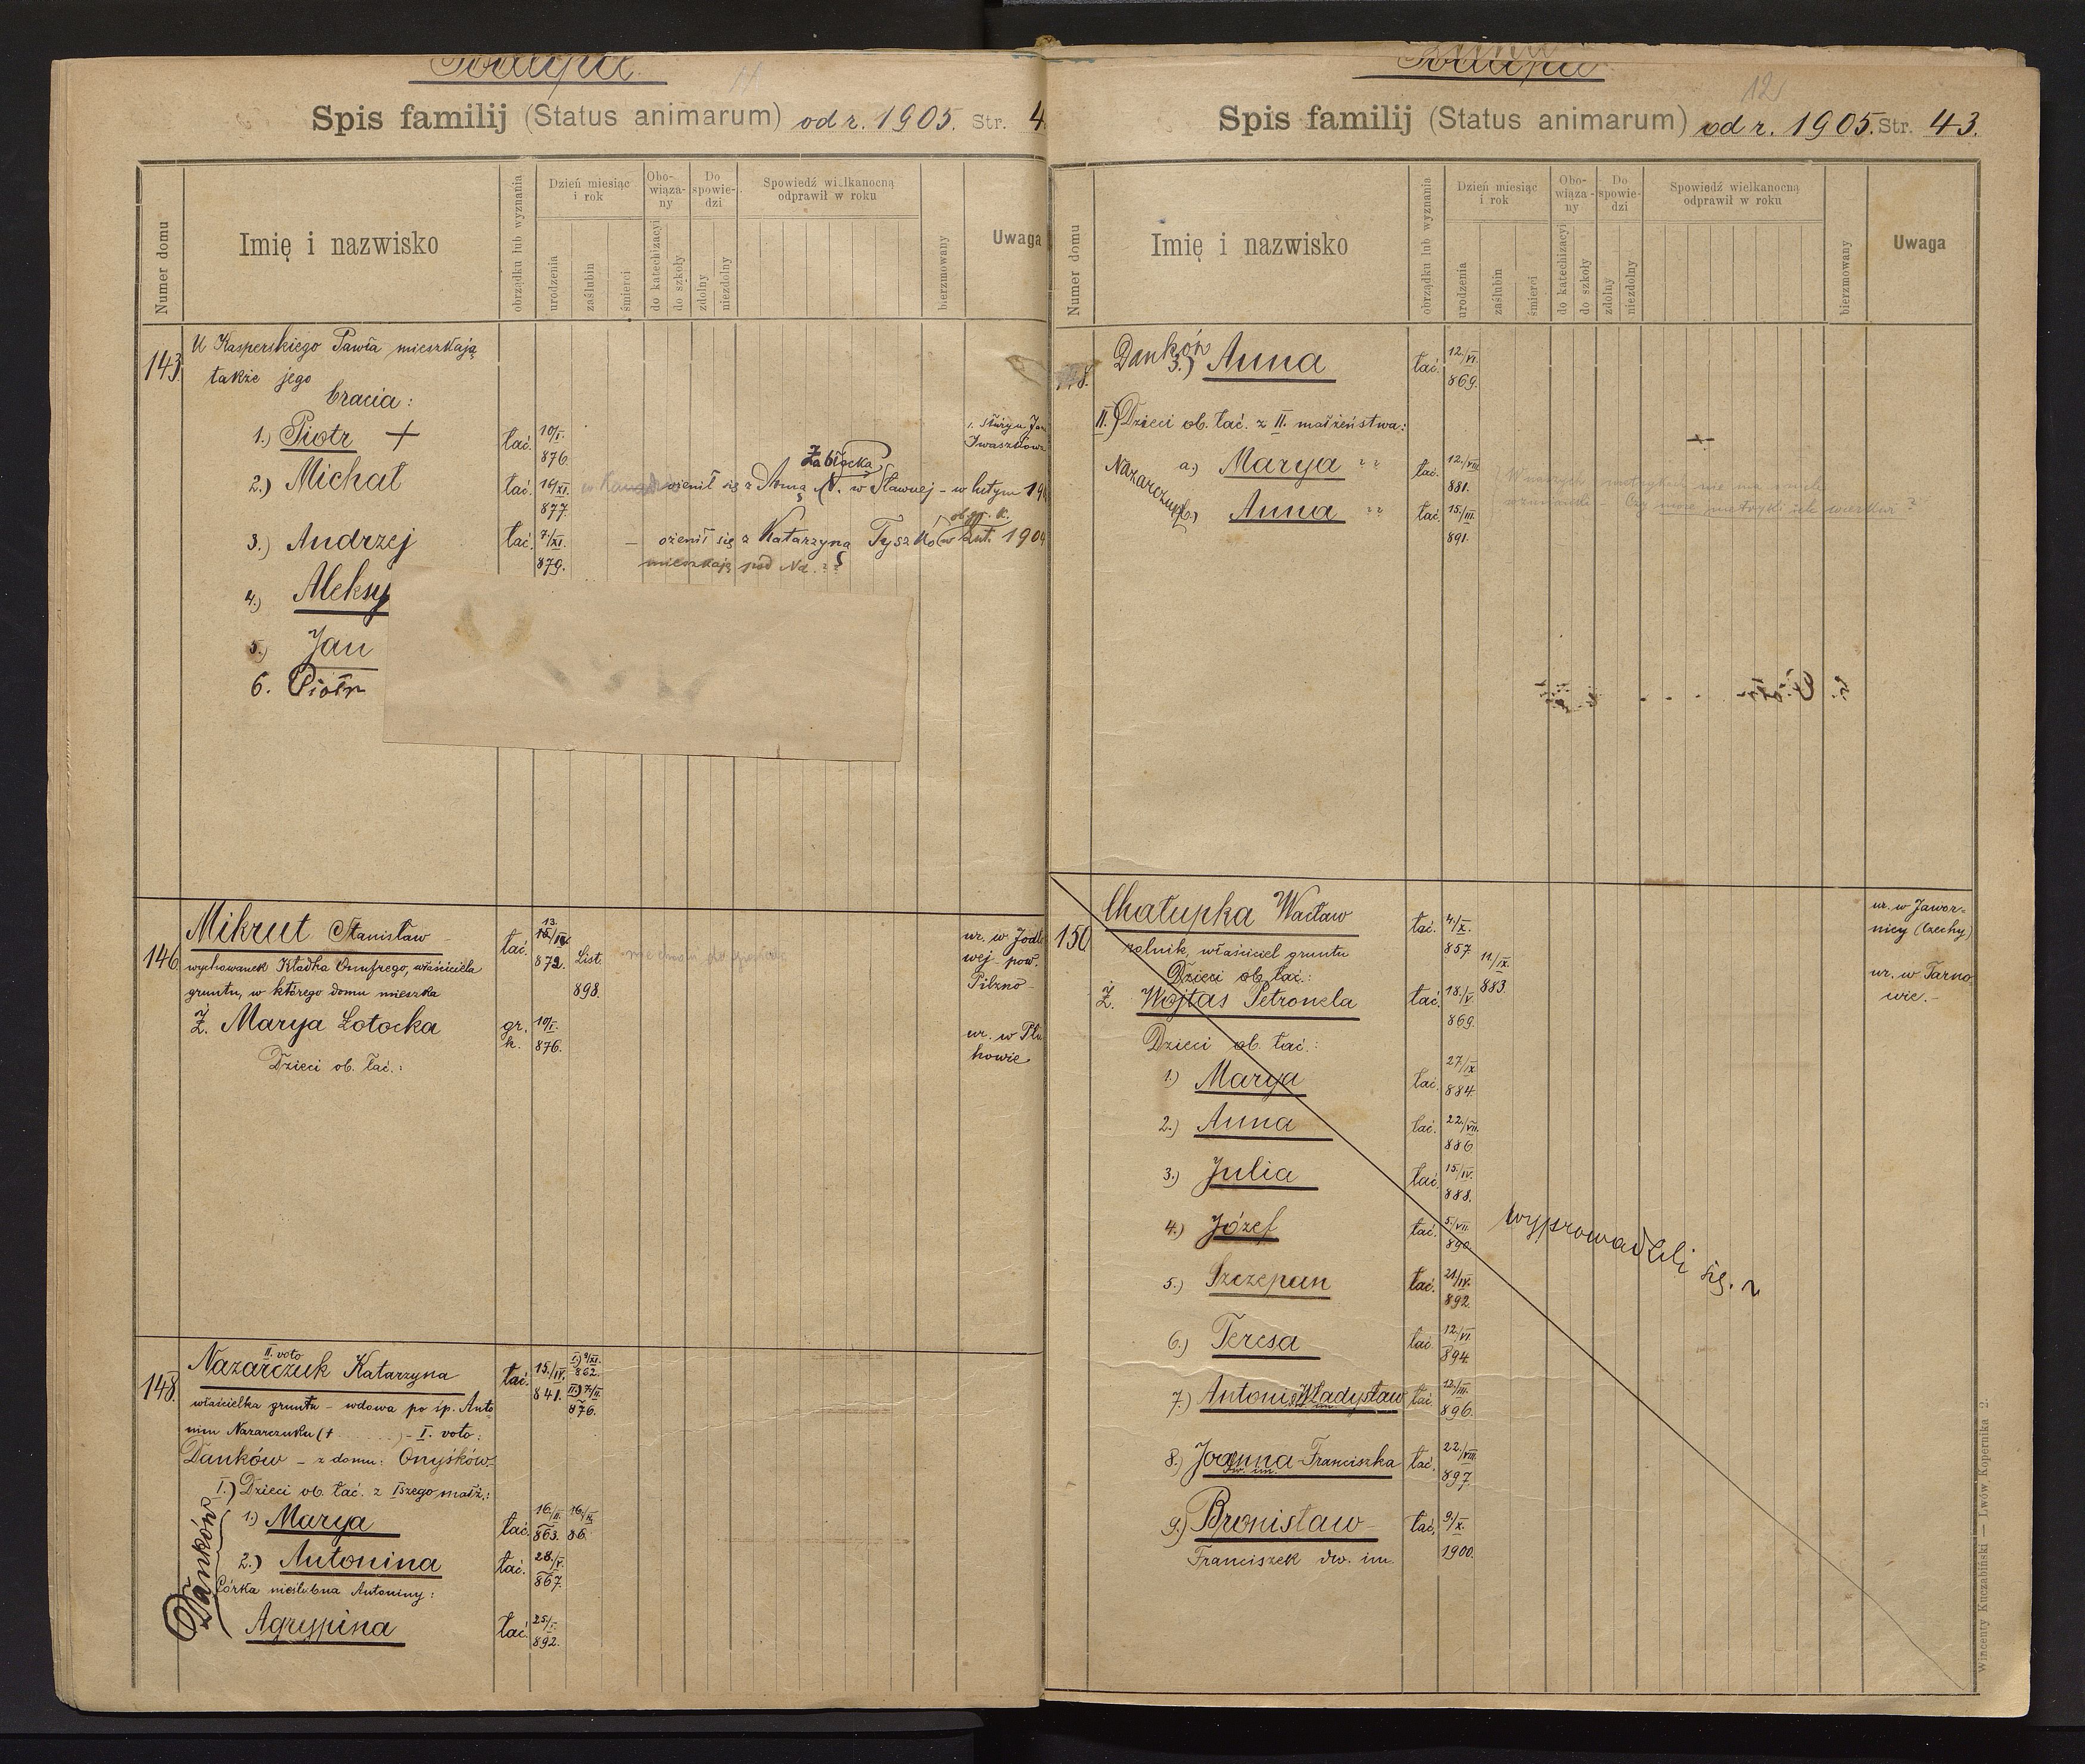 Spis familij (Status animarum) od r. 1905. Str. 4
Numer domu
Imię i nazwisko
obrządku lub wyznania
Dzień miesiąc i rok
urodzenia
zaślubin
śmierci
Obo-wiąza-ny
do katechizacyi
do szkoły
Do spowie-dzi
zdolny
niezdolny
Spowiedź wielkanocną odprawił w roku
bierzmowany
Uwaga
143. U Kasperskiego Pawła mieszkają
także jego
bracia:
1.) Piotr + łać. 10/I. 876.
2.) Michał łać. 16/XI. 877. ożenił się z Anną Zabłocką w Sławnej - w lutym
3.) Andrzej łać. 7/XI. 879. – ożenił się z Katarzyną Tyszko ob. gr. k. w Lut. 1904
mieszkają pod No. ??
4.) Aleksy
5.) Jan
6. Piotr
146. Mikrut Stanisław łać. 872. List. 898. ur. w Jodło
wychowanek Kładka Onufrego, właściciela wej pow.
gruntu, w którego domu mieszka Pilzno
Ż. Marya Łotocka gr. k. 10/I. 876. ur. w Płu
howie
Dzieci ob. łać.:
II. voto
148. Nazarczuk Katarzyna łać. 15/IV. 841. I.) 9/XI. 862. II.) 7/II. 876.
właścicielka gruntu – wdowa po śp. Anto
nim Nazarczuku († . . . . . ) - I. voto:
Danków – z domu: Onyśków
I.) Dzieci ob. łać. z Iszego małż.:
Danków
1.) Marya łać. 16/II. 863. 86.
2.) Antonina łać. 28/V. 867.
Córka nieślubna Antoniny:
Agrypina łać. 25/I. 892.
12
Spis familij (Status animarum) od r. 1905. Str. 43.
Numer domu
Imię i nazwisko
obrządku lub wyznania
Dzień miesiąc i rok
urodzenia
zaślubin
śmierci
Obo-wiąza-ny
do katechizacyi
do szkoły
Do spowie-dzi
zdolny
niezdolny
Spowiedź wielkanocną odprawił w roku
bierzmowany
Uwaga
148. Danków 3.) Anna łać. 12/VI. 869.
II.) Dzieci ob. łać. z II. małżeństwa:
Nazarczuk
a.) Marya " " łać. 12/VIII. 881.
b.) Anna " " łać. 15/III. 891.
150 Chałupka Wacław łać. 4/X. 857. 11/IX. 883. ur. w Jawor-
rolnik, właściciel gruntu nicy (Czechy)
Dzieci ob. łać.:
Ż. Wojtas Petronela łać. 18/V. 869. ur. w Tarno
wie. –
Dzieci ob. łać.:
1.) Marya łać. 27/IX 884.
2.) Anna łać. 22/VII. 886
3.) Julia łać. 15/IV. 888.
4.) Józef łać. 5/VII. 890.
wyprowadzili się.
5.) Szczepan łać. 21/IV. 892.
6.) Teresa łać 12/VI 894.
7.) Antoni Władysław dw. im. łać. 12/III. 896.
8.) Joanna - Franciszka dw. im. łać. 22/VIII. 897.
9.) Bronisław łać. 9/X. 1900.
Franciszek dw. im.
Wincenty Kuczabiński — Lwów, Kopernika 2.